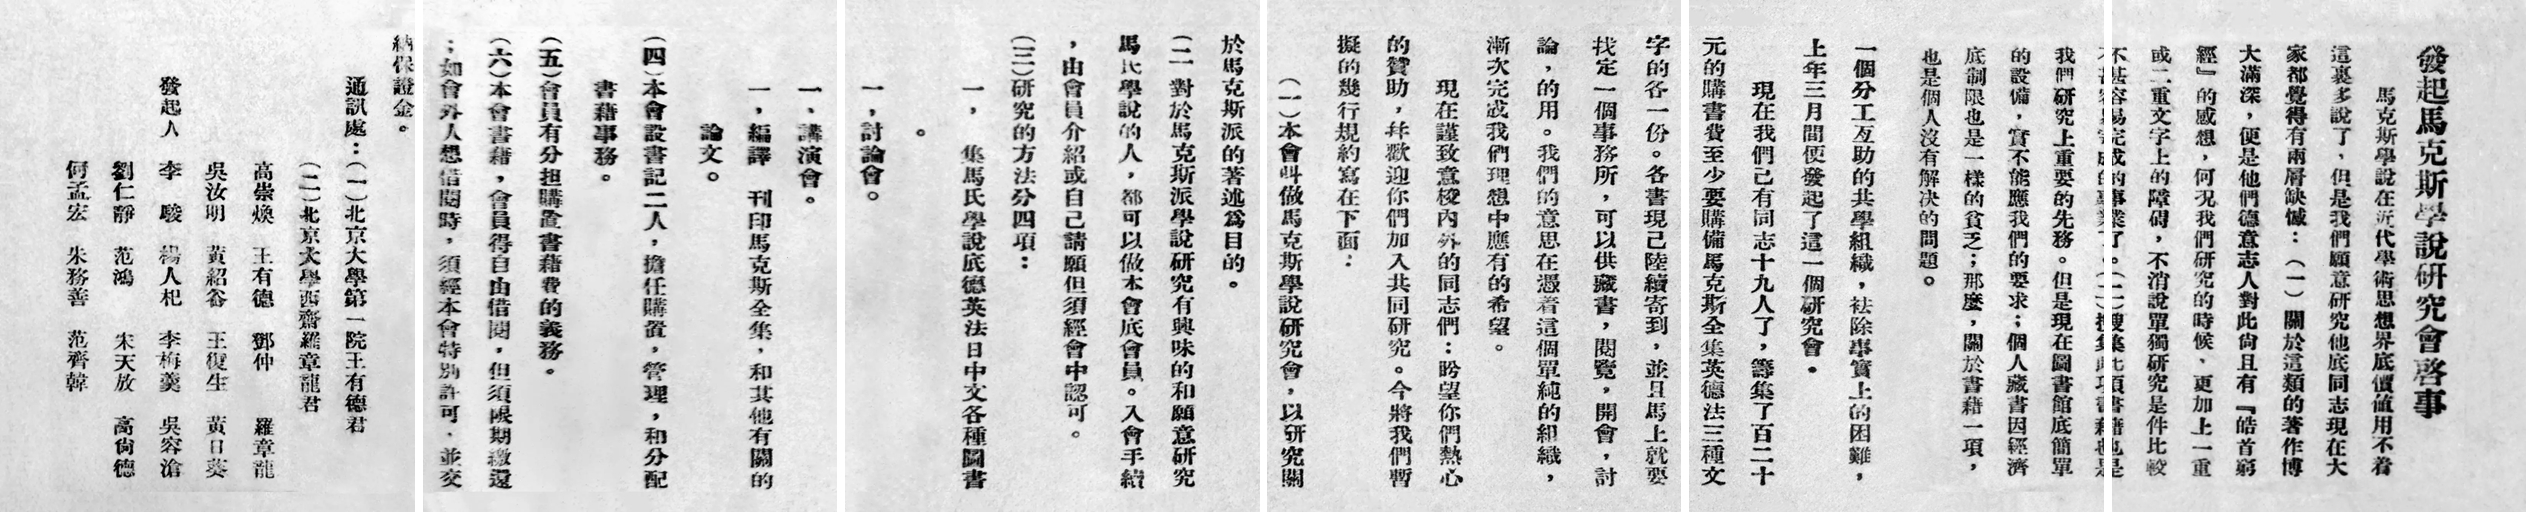 發起馬克斯學說研究會啓事
馬克斯學說在近代學術思想界底價値用不着
這裏多說了，但是我們願意研究他底同志現在大
家都覺得有兩層缺憾：（一）關於這類的著作博
大滿深，便是他們德意志人對此尙且有『皓首窮
經』的感想，何況我們硏究的時候，更加上一重
或二重文字上的障碍，不消說單獨研究是件比較
不甚容易完成的事業了。（二）搜集此項書藉也是
我們研究上重要的先務。但是現在圖書館底簡單
的設備，實不能應我們的要求；個人藏書因經濟
底制限也是一樣的貧乏；那麼，關於書藉一項，
也是個人沒有解決的問題。
一個分工互助的共學組織，祛除事實上的困難，
上年三月間便發起了這一個硏究會。
現在我們已有同志十九人了，籌集了百二十
元的購書費至少要購備馬克斯全集英德法三種文
字的各一份。各書現已陸續寄到，並且馬上就要
找定一個事務所，可以供藏書，閱覽，開會，討
論，的用。我們的意思在憑着這個單純的組織，
漸次完成我們理想中應有的希望。
現在謹致意校內外的同志們：盼望你們熱心
的贊助，幷歡迎你們加入共同研究。今將我們暫
擬的幾行規約寫在下面：
（一）本會叫做馬克斯學說研究會，以研究關
於馬克斯派的著述爲目的。
（二 對於馬克斯派學說研究有興味的和願意研究
馬氏學說的人，都可以做本會底會員。入會手續
，由會員介紹或自己請願但須經會中認可。
（三）研究的方法分四項：
一， 集馬氏學說底德英法日中文各種圖書
。
一，討論會。
一、講演會。
一，編譯 刊印馬克斯全集，和其他有關的
論文。
（四）本會設書記二人，擔任購置，管理，和分配
書藉事務。
（五）會員有分担購置書藉費的義務。
（六）本會書藉，會員得自由借閱，但須限期繳還
；如會外人想借閱時，須經本會特別許可，並交
納保證金。
通訊處：（一）北京大學第一院王有德君
（二）北京大學西齋羅章龍君
發起人
高崇煥 王有德 鄧仲 羅章龍
吳汝明 黃紹谷 王復生 黃日葵
李 駿 楊人杞 李梅羹 吳容滄
劉仁靜 范鴻 朱天放 高尙德
何孟宏 朱務善 范齊韓